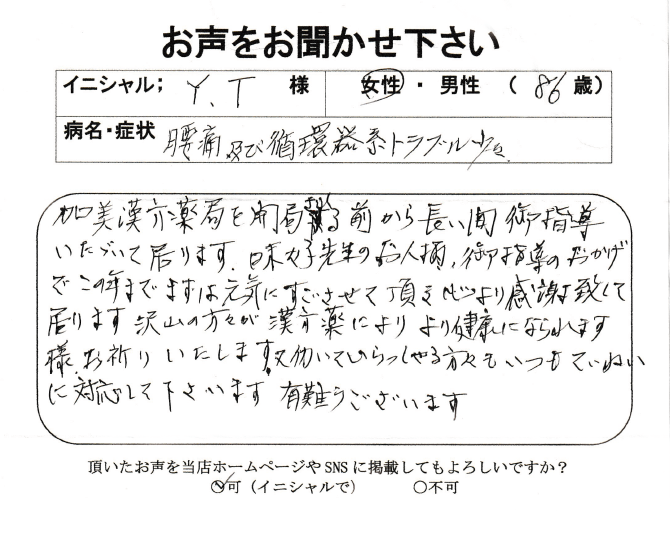 お声をお聞かせ下さい
イニシャル; Y.T 様 女性・男性 (86歳)
病名・症状 腰痛及び循環器系トラブル少々
加美漢方薬局を開局する前から長い間御指導
いただいて居ります。先生のお人柄、御指導のおかげ
でこの年までまずは元気にすごさせて頂き心より感謝致して
居ります 沢山の方々が漢方薬により より健康になられます
様、お祈りいたします 又働いていらっしゃる方々もいつもていねい
に対応して下さいます 有難うございます
頂いたお声を当店ホームページやSNSに掲載してもよろしいですか?
○可(イニシャルで) ○不可